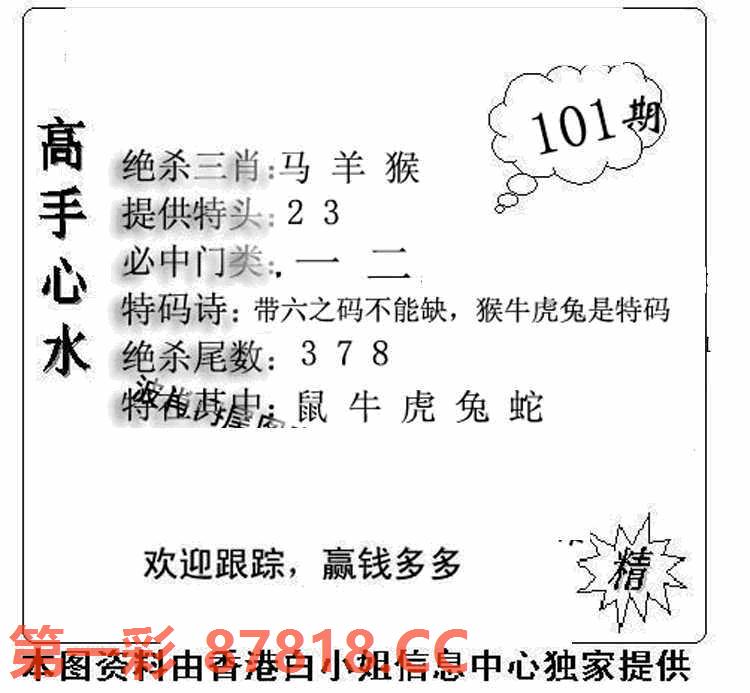 101期
高手心水
绝杀三肖:马 羊 猴
提供特头:2 3
必中门类:一 二
特码诗:带六之码不能缺,猴牛虎兔是特码
绝杀尾数:3 7 8
特在其中:鼠 牛 虎 兔 蛇
欢迎跟踪,赢钱多多
精
第一彩 87818.CC
本图资料由香港白小姐信息中心独家提供